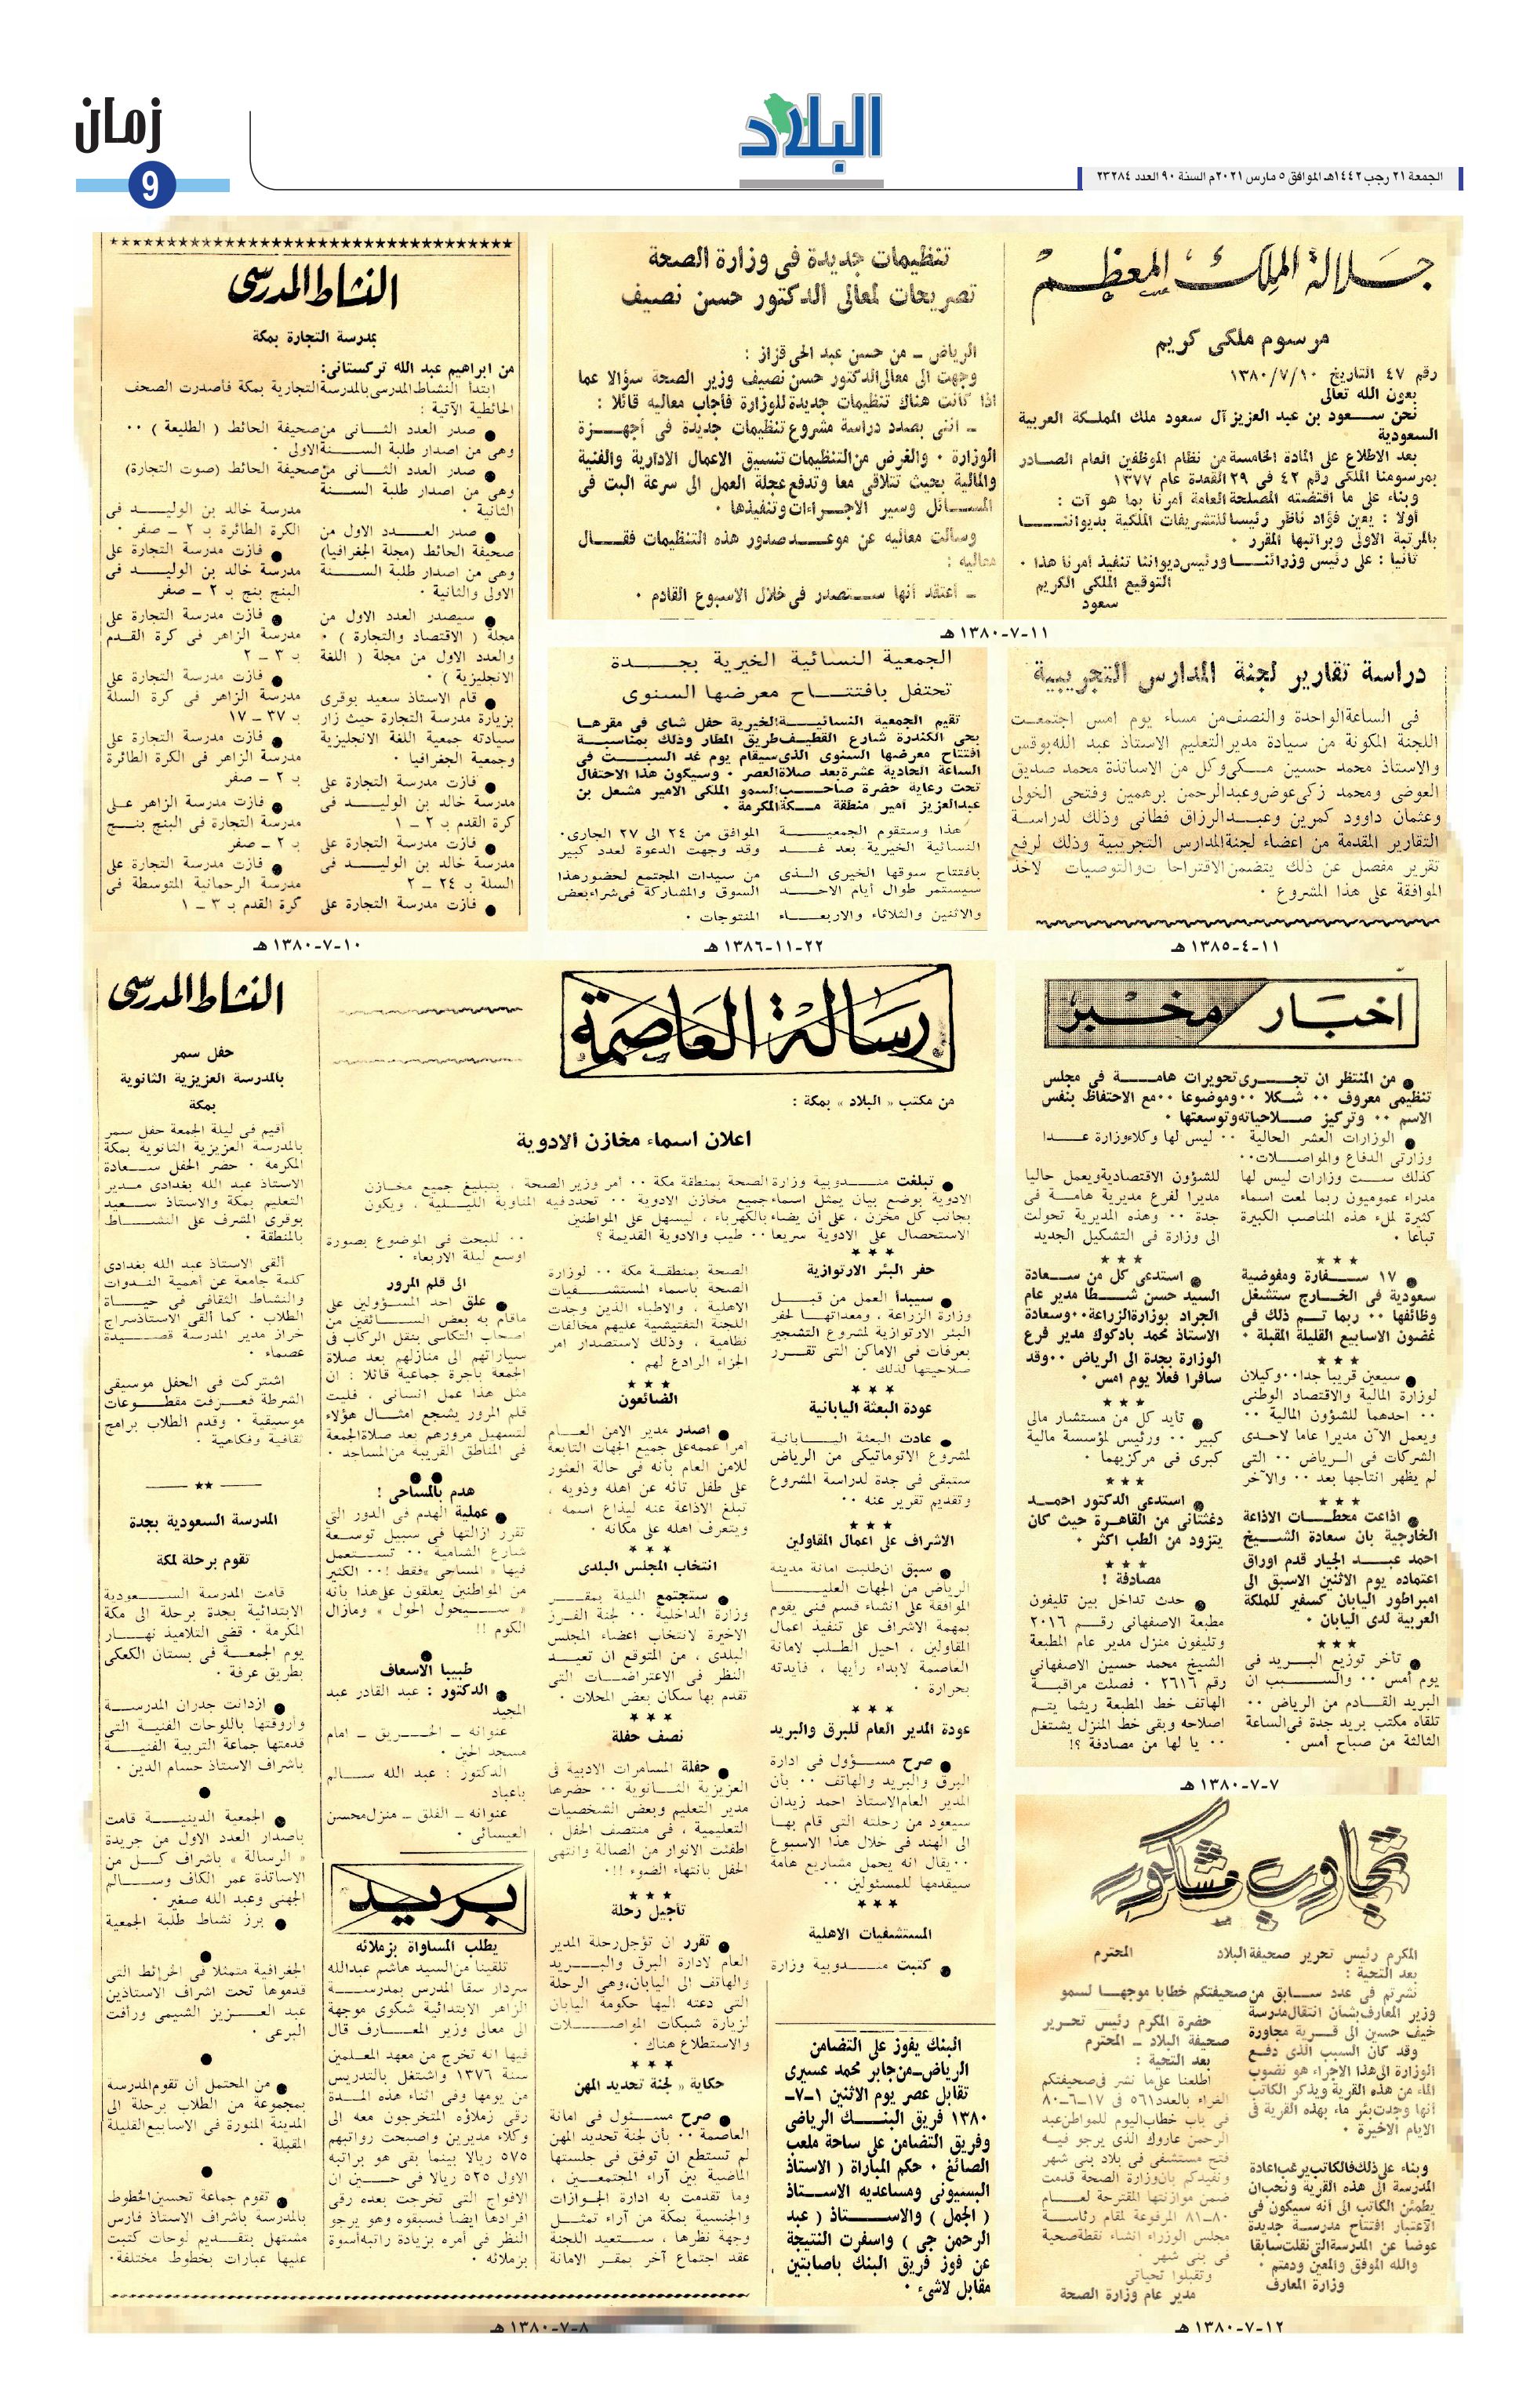 زمان
9
البلاد
الجمعة ٢١ رجب ١٤٤٢هـ الموافق ٥ مارس ٢٠٢١م السنة ٩٠ العدد ٢٣٢٨٤
جلالة الملك المعظم
مرسوم ملكى كريم
رقم ٤٧ التاريخ ١٣٨٠/٧/١٠
بعون الله تعالى
نحن سعود بن عبد العزيز آل سعود ملك المملكة العربية
السعودية
بعد الاطلاع على المادة الخامسة من نظام الموظفين العام الصادر
بمرسومنا الملكى رقم ٤٢ فى ٢٩ القعدة عام ١٣٧٧
وبناء على ما اقتضته المصلحة العامة أمرنا بما هو آت :
أولا : يعين فؤاد ناظر رئيسا للتشريفات الملكية بديواننا
بالمرتبة الاولى وبراتبها المقرر .
ثانيا : على رئيس وزرائنا ورئيس ديواننا تنفيذ أمرنا هذا .
التوقيع الملكى الكريم
سعود
تنظيمات جديدة فى وزارة الصحة
تصريحات لمعالى الدكتور حسن نصيف
الرياض - من حسن عبد الحى قزاز :
وجهت الى معالى الدكتور حسن نصيف وزير الصحة سؤالا عما
اذا كانت هناك تنظيمات جديدة للوزارة فأجاب معاليه قائلا :
- اننى بصدد دراسة مشروع تنظيمات جديدة فى أجهزة
الوزارة . والغرض من التنظيمات تنسيق الاعمال الادارية والفنية
والمالية بحيث تتلاقى معا وتدفع عجلة العمل الى سرعة البت فى
المسائل وسير الاجراءات وتنفيذها .
وسألت معاليه عن موعد صدور هذه التنظيمات فقال
معاليه :
- أعتقد أنها ستصدر فى خلال الاسبوع القادم .
١١-٧-١٣٨٠ هـ
النشاط المدرسى
بمدرسة التجارة بمكة
من ابراهيم عبد الله تركستانى:
ابتدأ النشاط المدرسى بالمدرسة التجارية بمكة فأصدرت الصحف
الحائطية الآتية :
● صدر العدد الثانى من صحيفة الحائط ( الطليعة ) ..
وهى من اصدار طلبة السنة الاولى .
● صدر العدد الثانى من صحيفة الحائط (صوت التجارة)
وهى من اصدار طلبة السنة
الثانية .
● صدر العدد الاول من
صحيفة الحائط (مجلة الجغرافيا)
وهى من اصدار طلبة السنة
الاولى والثانية .
● سيصدر العدد الاول من
مجلة ( الاقتصاد والتجارة ) .
والعدد الاول من مجلة ( اللغة
الانجليزية ) .
● قام الاستاذ سعيد بوقرى
بزيارة مدرسة التجارة حيث زار
سيادته جمعية اللغة الانجليزية
وجمعية الجغرافيا .
● فازت مدرسة التجارة على
مدرسة خالد بن الوليد فى
كرة القدم بـ ٢ - ١
● فازت مدرسة التجارة على
مدرسة خالد بن الوليد فى
السلة بـ ٢٤ - ٢
● فازت مدرسة التجارة على
مدرسة خالد بن الوليد فى
الكرة الطائرة بـ ٢ - صفر .
● فازت مدرسة التجارة على
مدرسة خالد بن الوليد فى
البنج بنج بـ ٢ - صفر
● فازت مدرسة التجارة على
مدرسة الزاهر فى كرة القدم
بـ ٣ - ٢
● فازت مدرسة التجارة على
مدرسة الزاهر فى كرة السلة
بـ ٣٧ - ١٧
● فازت مدرسة التجارة على
مدرسة الزاهر فى الكرة الطائرة
بـ ٢ - صفر
● فازت مدرسة الزاهر على
مدرسة التجارة فى البنج بنج
بـ ٢ - صفر
● فازت مدرسة التجارة على
مدرسة الرحمانية المتوسطة فى
كرة القدم بـ ٣ - ١
١٠-٧-١٣٨٠ هـ
دراسة تقارير لجنة المدارس التجريبية
فى الساعة الواحدة والنصف من مساء يوم امس اجتمعت
اللجنة المكونة من سيادة مدير التعليم الاستاذ عبد الله بوقس
والاستاذ محمد حسين مكى وكل من الاساتذة محمد صديق
العوضى ومحمد زكى عوض وعبد الرحمن برهمين وفتحى الخولى
وعثمان داوود كمرين وعبد الرزاق فطانى وذلك لدراسة
التقارير المقدمة من اعضاء لجنة المدارس التجريبية وذلك لرفع
تقرير مفصل عن ذلك يتضمن الاقتراحات والتوصيات لاخذ
الموافقة على هذا المشروع .
١١-٤-١٣٨٥ هـ
الجمعية النسائية الخيرية بجدة
تحتفل بافتتاح معرضها السنوى
تقيم الجمعية النسائية الخيرية حفل شاى فى مقرها
بحى الكندرة شارع القطيف طريق المطار وذلك بمناسبة
افتتاح معرضها السنوى الذى سيقام يوم غد السبت فى
الساعة الحادية عشرة بعد صلاة العصر . وسيكون هذا الاحتفال
تحت رعاية حضرة صاحب السمو الملكى الامير مشعل بن
عبد العزيز أمير منطقة مكة المكرمة .
هذا وستقوم الجمعية
النسائية الخيرية بعد غد
بافتتاح سوقها الخيرى الذى
سيستمر طوال أيام الاحد
والاثنين والثلاثاء والاربعاء
الموافق من ٢٤ الى ٢٧ الجارى.
وقد وجهت الدعوة لعدد كبير
من سيدات المجتمع لحضور هذا
السوق والمشاركة فى شراء بعض
المنتوجات .
٢٢-١١-١٣٨٦ هـ
أخبار مخبر
● من المنتظر ان تجرى تحويرات هامة فى مجلس
تنظيمى معروف .. شكلا .. وموضوعا .. مع الاحتفاظ بنفس
الاسم .. وتركيز صلاحياته وتوسعتها .
● الوزارات العشر الحالية .. ليس لها وكلاء وزارة عدا
وزارتى الدفاع والمواصلات..
كذلك ست وزارات ليس لها
مدراء عموميون ربما لمعت اسماء
كثيرة لملء هذه المناصب الكبيرة
تباعا .
● ١٧ سفارة ومفوضية
سعودية فى الخارج ستشغل
وظائفها .. ربما تم ذلك فى
غضون الاسابيع القليلة المقبلة .
● سيعين قريبا جدا .. وكيلان
لوزارة المالية والاقتصاد الوطنى
.. احدهما للشؤون المالية ..
ويعمل الآن مديرا عاما لاحدى
الشركات فى الرياض .. التى
لم يظهر انتاجها بعد .. والآخر
● اذاعت محطات الاذاعة
الخارجية بان سعادة الشيخ
احمد عبد الجبار قدم اوراق
اعتماده يوم الاثنين الاسبق الى
امبراطور اليابان كسفير للمملكة
العربية لدى اليابان .
● تأخر توزيع البريد فى
يوم أمس .. والسبب ان
البريد القادم من الرياض ..
تلقاه مكتب بريد جدة فى الساعة
الثالثة من صباح أمس .
للشؤون الاقتصادية ويعمل حاليا
مديرا لفرع مديرية هامة فى
جدة .. وهذه المديرية تحولت
الى وزارة فى التشكيل الجديد
● استدعى كل من سعادة
السيد حسن شطا مدير عام
الجراد بوزارة الزراعة .. وسعادة
الاستاذ محمد بادكوك مدير فرع
الوزارة بجدة الى الرياض .. وقد
سافرا فعلا يوم امس .
● تأيد كل من مستشار مالى
كبير .. ورئيس لمؤسسة مالية
كبرى فى مركزيهما .
● استدعى الدكتور احمد
دغثتانى من القاهرة حيث كان
يتزود من الطب اكثر .
مصادفة !
● حدث تداخل بين تليفون
مطبعة الاصفهانى رقم ٢٠١٦
وتليفون منزل مدير عام المطبعة
الشيخ محمد حسين الاصفهانى
رقم ٢٦١٦ . فصلت مراقبة
الهاتف خط المطبعة ريثما يتم
اصلاحه وبقى خط المنزل يشتغل
.. يا لها من مصادفة ؟!
٧-٧-١٣٨٠ هـ
رسالة العاصمة
من مكتب « البلاد » بمكة :
اعلان اسماء مخازن الادوية
● تبلغت مندوبية وزارة الصحة بمنطقة مكة .. أمر وزير الصحة ، بتبليغ جميع مخازن
الادوية بوضع بيان يمثل اسماء جميع مخازن الادوية .. تحدد فيه المناوبة الليلية ، ويكون
بجانب كل مخزن ، على أن يضاء بالكهرباء ، ليسهل على المواطنين
الاستحصال على الادوية سريعا .. طيب والادوية القديمة ؟
حفر البئر الارتوازية
● سيبدأ العمل من قبل
وزارة الزراعة ، ومعداتها لحفر
البئر الارتوازية لمشروع التشجير
بعرفات فى الاماكن التى تقرر
صلاحيتها لذلك .
عودة البعثة اليابانية
● عادت البعثة اليابانية
لمشروع الاتوماتيكى من الرياض
ستبقى فى جدة لدراسة المشروع
وتقديم تقرير عنه ..
الاشراف على اعمال المقاولين
● سبق ان طلبت امانة مدينة
الرياض من الجهات العليا
الموافقة على انشاء قسم فنى يقوم
بمهمة الاشراف على تنفيذ اعمال
المقاولين ، احيل الطلب لامانة
العاصمة لابداء رأيها ، فأيدته
بحرارة .
عودة المدير العام للبرق والبريد
● صرح مسؤول فى ادارة
البرق والبريد والهاتف .. بأن
المدير العام الاستاذ احمد زيدان
سيعود من رحلته التى قام بها
الى الهند فى خلال هذا الاسبوع
.. يقال انه يحمل مشاريع هامة
سيقدمها للمسئولين ..
المستشفيات الاهلية
● كتبت مندوبية وزارة
الصحة بمنطقة مكة .. لوزارة
الصحة باسماء المستشفيات
الاهلية ، والاطباء الذين وجدت
اللجنة التفتيشية عليهم مخالفات
نظامية ، وذلك لاستصدار امر
الجزاء الرادع لهم .
الضائعون
● اصدر مدير الامن العام
امرا عممه على جميع الجهات التابعة
للامن العام بأنه فى حالة العثور
على طفل تائه عن اهله وذويه ،
تبلغ الاذاعة عنه ليذاع اسمه ،
ويتعرف اهله على مكانه .
انتخاب المجلس البلدى
● ستجتمع الليلة بمقر
وزارة الداخلية .. لجنة الفرز
الاخيرة لانتخاب اعضاء المجلس
البلدى ، من المتوقع ان تعيد
النظر فى الاعتراضات التى
تقدم بها سكان بعض المحلات .
نصف حفلة
● حفلة المسامرات الادبية فى
العزيزية الثانوية .. حضرها
مدير التعليم وبعض الشخصيات
التعليمية ، فى منتصف الحفل ،
اطفئت الانوار من الصالة وانتهى
الحفل بانتهاء الضوء !!.
تأجيل رحلة
● تقرر ان تؤجل رحلة المدير
العام لادارة البرق والبريد
والهاتف الى اليابان، وهى الرحلة
التى دعته اليها حكومة اليابان
لزيارة شبكات المواصلات
والاستطلاع هناك .
حكاية « لجنة تحديد المهن
● صرح مسئول فى امانة
العاصمة .. بأن لجنة تحديد المهن
لم تستطع ان توفق فى جلستها
الماضية بين آراء المجتمعين ،
وما تقدمت به ادارة الجوازات
والجنسية بمكة من آراء تمثل
وجهة نظرها ، ستعيد اللجنة
عقد اجتماع آخر بمقر الامانة
.. للبحث فى الموضوع بصورة
اوسع ليلة الاربعاء .
الى قلم المرور
● علق احد المسؤولين على
ماقام به بعض السائقين من
اصحاب التكاسى بنقل الركاب فى
سياراتهم الى منازلهم بعد صلاة
الجمعة بأجرة جماعية قائلا : ان
مثل هذا عمل انسانى ، فليت
قلم المرور يشجع امثال هؤلاء
لتسهيل مرورهم بعد صلاة الجمعة
فى المناطق القريبة من المساجد .
هدم بالمساحى !
● عملية الهدم فى الدور التى
تقرر ازالتها فى سبيل توسعة
شارع الشامية .. تستعمل
فيها « المساحى » فقط ! .. الكثير
من المواطنين يعلقون على هذا بأنه
« سيحول الحول » ومازال
الكوم !!
طبيبا الاسعاف
● الدكتور : عبد القادر عبد
المجيد
عنوانه - الحريق - امام
مسجد الجن .
الدكتور : عبد الله سالم
باعباد
عنوانه - الفلق - منزل محسن
العيسائى .
بريد
يطلب المساواة بزملائه
تلقينا من السيد هاشم عبدالله
سردار سقا المدرس بمدرسة
الزاهر الابتدائية شكوى موجهة
الى معالى وزير المعارف قال
فيها انه تخرج من معهد المعلمين
سنة ١٣٧٦ واشتغل بالتدريس
من يومها وفى اثناء هذه المدة
رقى زملاؤه المتخرجون معه الى
وكلاء مديرين واصبحت رواتبهم
٥٧٥ ريالا بينما بقى هو براتبه
الاول ٥٢٥ ريالا فى حين ان
الافواج التى تخرجت بعده رقى
افرادها ايضا فسبقوه وهو يرجو
النظر فى أمره بزيادة راتبه اسوة
بزملائه .
البنك يفوز على التضامن
الرياض-من جابر محمد عسيرى
تقابل عصر يوم الاثنين ١-٧-
١٣٨٠ فريق البنك الرياضى
وفريق التضامن على ساحة ملعب
الصائغ . حكم المباراة ( الاستاذ
البسيونى ومساعديه الاستاذ
( الجمل ) والاستاذ ( عبد
الرحمن جى ) واسفرت النتيجة
عن فوز فريق البنك باصابتين
مقابل لاشىء .
النشاط المدرسى
حفل سمر
بالمدرسة العزيزية الثانوية
بمكة
أقيم فى ليلة الجمعة حفل سمر
بالمدرسة العزيزية الثانوية بمكة
المكرمة . حضر الحفل سعادة
الاستاذ عبد الله بغدادى مدير
التعليم بمكة والاستاذ سعيد
بوقرى المشرف على النشاط
بالمنطقة .
ألقى الاستاذ عبد الله بغدادى
كلمة جامعة عن أهمية الندوات
والنشاط الثقافى فى حياة
الطلاب . كما ألقى الاستاذ سراج
خراز مدير المدرسة قصيدة
عصماء .
اشتركت فى الحفل موسيقى
الشرطة فعزفت مقطوعات
موسيقية . وقدم الطلاب برامج
ثقافية وفكاهية .
المدرسة السعودية بجدة
تقوم برحلة لمكة
قامت المدرسة السعودية
الابتدائية بجدة برحلة الى مكة
المكرمة . قضى التلاميذ نهار
يوم الجمعة فى بستان الكعكى
بطريق عرفة .
● ازدانت جدران المدرسة
وأروقتها باللوحات الفنية التى
قدمتها جماعة التربية الفنية
باشراف الاستاذ حسام الدين .
● الجمعية الدينية قامت
باصدار العدد الاول من جريدة
« الرسالة » باشراف كل من
الاساتذة عمر الكاف وسالم
الجهنى وعبد الله صغير .
● برز نشاط طلبة الجمعية
الجغرافية متمثلا فى الخرائط التى
قدموها تحت اشراف الاستاذين
عبد العزيز الشيمى ورأفت
البرعى .
● من المحتمل أن تقوم المدرسة
بمجموعة من الطلاب برحلة الى
المدينة المنورة فى الاسابيع القليلة
المقبلة .
● تقوم جماعة تحسين الخطوط
بالمدرسة باشراف الاستاذ فارس
مشتهل بتقديم لوحات كتبت
عليها عبارات بخطوط مختلفة.
٨-٧-١٣٨٠ هـ
تجاوب مشكور
المكرم رئيس تحرير صحيفة البلاد المحترم
بعد التحية :
نشرتم فى عدد سابق من صحيفتكم خطابا موجها لسمو
وزير المعارف بشأن انتقال مدرسة
خيف حسين الى قرية مجاورة
وقد كان السبب الذى دفع
الوزارة الى هذا الاجراء هو نضوب
الماء من هذه القرية ويذكر الكاتب
أنها وجدت بئر ماء بهذه القرية فى
الايام الاخيرة .
وبناء على ذلك فالكاتب يرغب اعادة
المدرسة الى هذه القرية ونحب ان
يطمئن الكاتب الى أنه سيكون فى
الاعتبار افتتاح مدرسة جديدة
عوضا عن المدرسة التى نقلت سابقا
والله الموفق والمعين ودمتم .
وزارة المعارف
حضرة المكرم رئيس تحرير
صحيفة البلاد - المحترم
بعد التحية :
اطلعنا على ما نشر فى صحيفتكم
الغراء بالعدد ٥٦١ فى ١٧-٦-٨٠
فى باب خطاب اليوم للمواطن عبد
الرحمن عاروك الذى يرجو فيه
فتح مستشفى فى بلاد بنى شهر
ونفيدكم بان وزارة الصحة قدمت
ضمن موازنتها المقترحة لعام
٨٠-٨١ المرفوعة لمقام رئاسة
مجلس الوزراء انشاء نقطة صحية
فى بنى شهر .
وتقبلوا تحياتى
مدير عام وزارة الصحة
١٢-٧-١٣٨٠ هـ